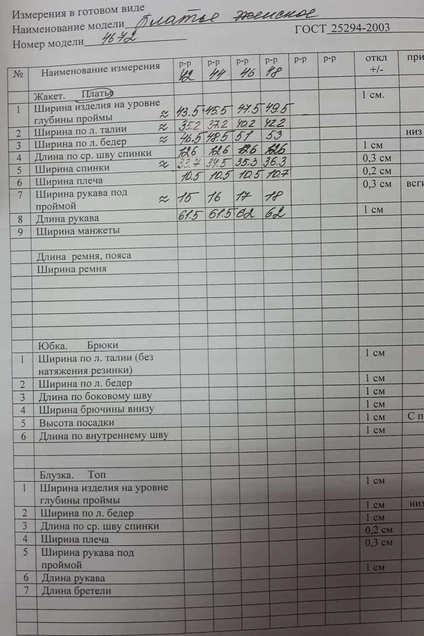 Измерения в готовом виде
Наименование модели Платье женское
Номер модели 4672 ГОСТ 25294-2003
№ Наименование измерения р-р 42 р-р 44 р-р 46 р-р 48 р-р р-р откл +/- при
Жакет. Платье 1 см.
1 Ширина изделия на уровне
глубины проймы ≈ 43.5 45.5 47.5 49.5
2 Ширина по л. талии ≈ 35.2 37.2 40.2 42.2
3 Ширина по л. бедер ≈ 46.5 48.5 51 53 низ
4 Длина по ср. шву спинки 126 126 126 126 1 см
5 Ширина спинки ≈ 33.7 34.5 35.3 36.3 0,3 см
6 Ширина плеча 10.5 10.5 10.5 10.7 0,2 см
7 Ширина рукава под 0,3 см
проймой ≈ 15 16 17 18
8 Длина рукава 61.5 61.5 62 62 1 см
9 Ширина манжеты
Длина ремня, пояса
Ширина ремня
Юбка. Брюки
1 Ширина по л. талии (без 1 см
натяжения резинки)
2 Ширина по л. бедер 1 см
3 Длина по боковому шву 1 см
4 Ширина брючины внизу 1 см
5 Высота посадки 1 см С п
6 Длина по внутреннему шву 1 см
Блузка. Топ
1 Ширина изделия на уровне 1 см
глубины проймы
2 Ширина по л. бедер 1 см низ
3 Длина по ср. шву спинки 1 см
4 Ширина плеча 0,2 см
5 Ширина рукава под 0,3 см
проймой
6 Длина рукава 1 см
7 Длина бретели